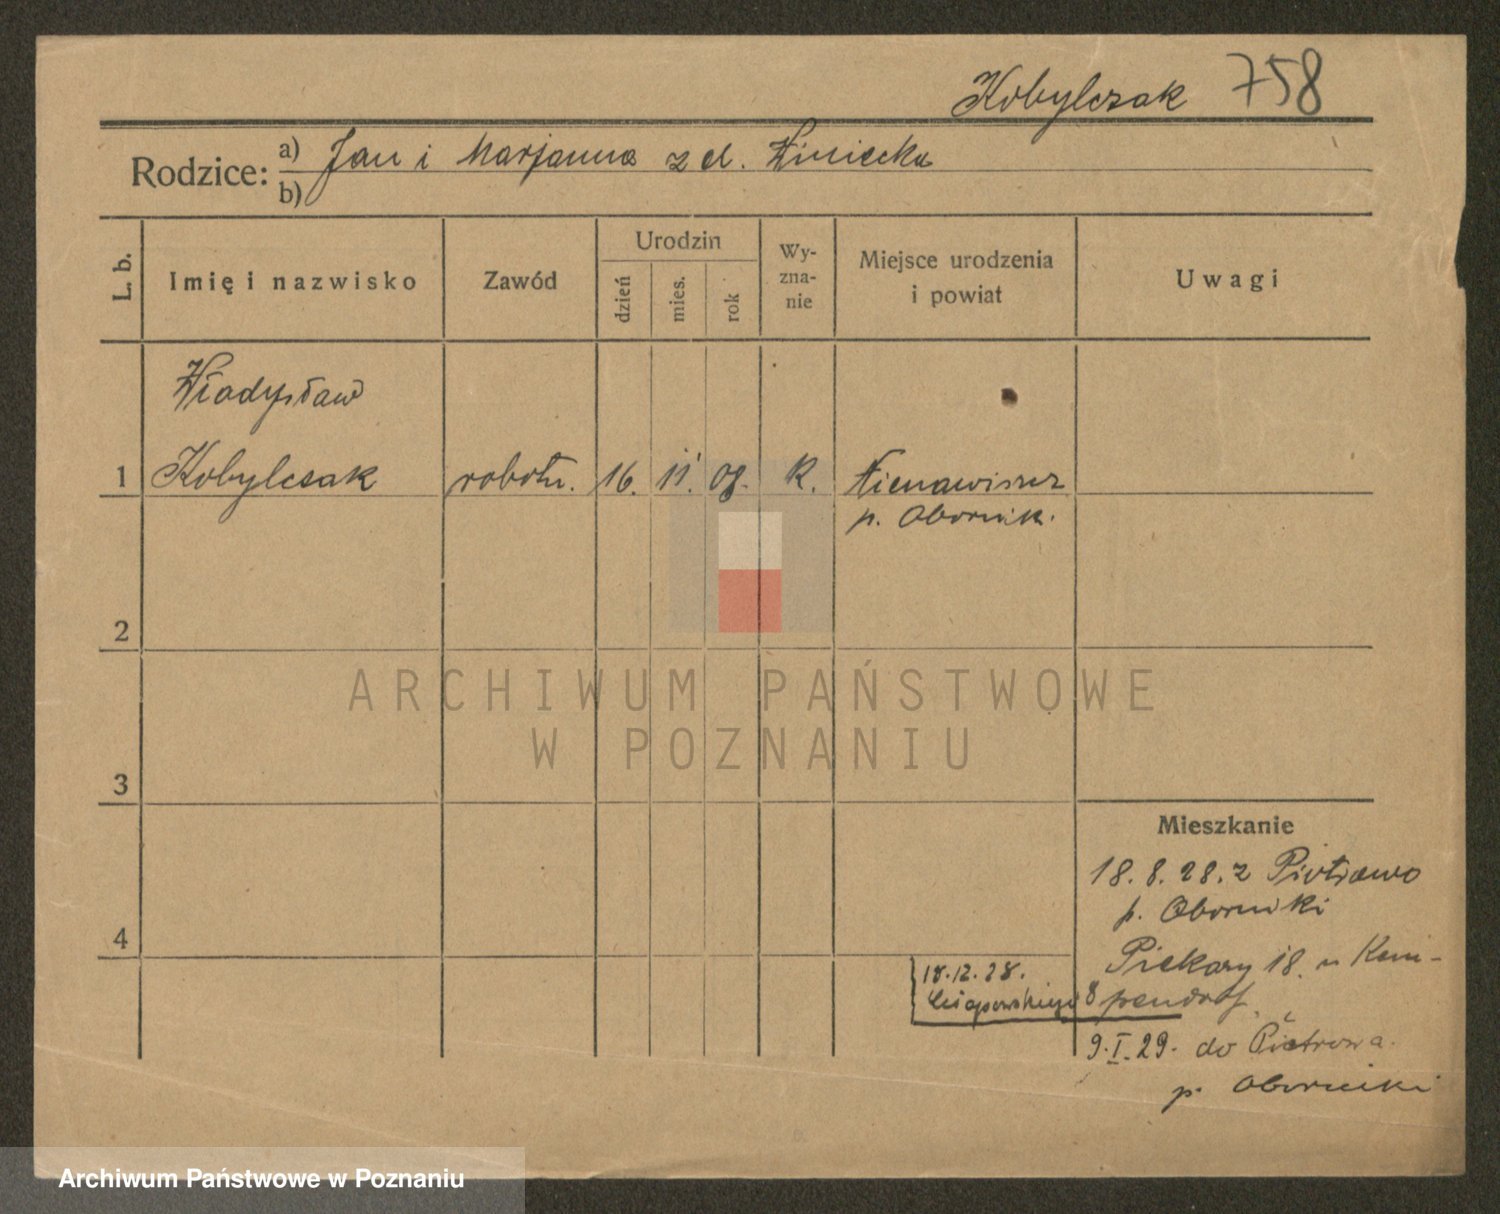 Kobylczak 758
Rodzice: a) Jan i Marjanna z d. Winiecka
b)
L. b.
Imię i nazwisko
Zawód
Urodzin
dzień
mies.
rok
Wy-
zna-
nie
Miejsce urodzenia
i powiat
Uwagi
Władysław
1 Kobylczak robotn. 16. 11. 08. K. Nienawiszcz
p. Obornik.
2
ARCHIWUM PAŃSTWOWE
W POZNANIU
3
Mieszkanie
18. 8. 28. z Piotrowo
p. Oborniki
4
Piekary 18. u
18. 12. 28.
8
9. I. 29. do Piotrowa.
p. Oborniki
Archiwum Państwowe w Poznaniu